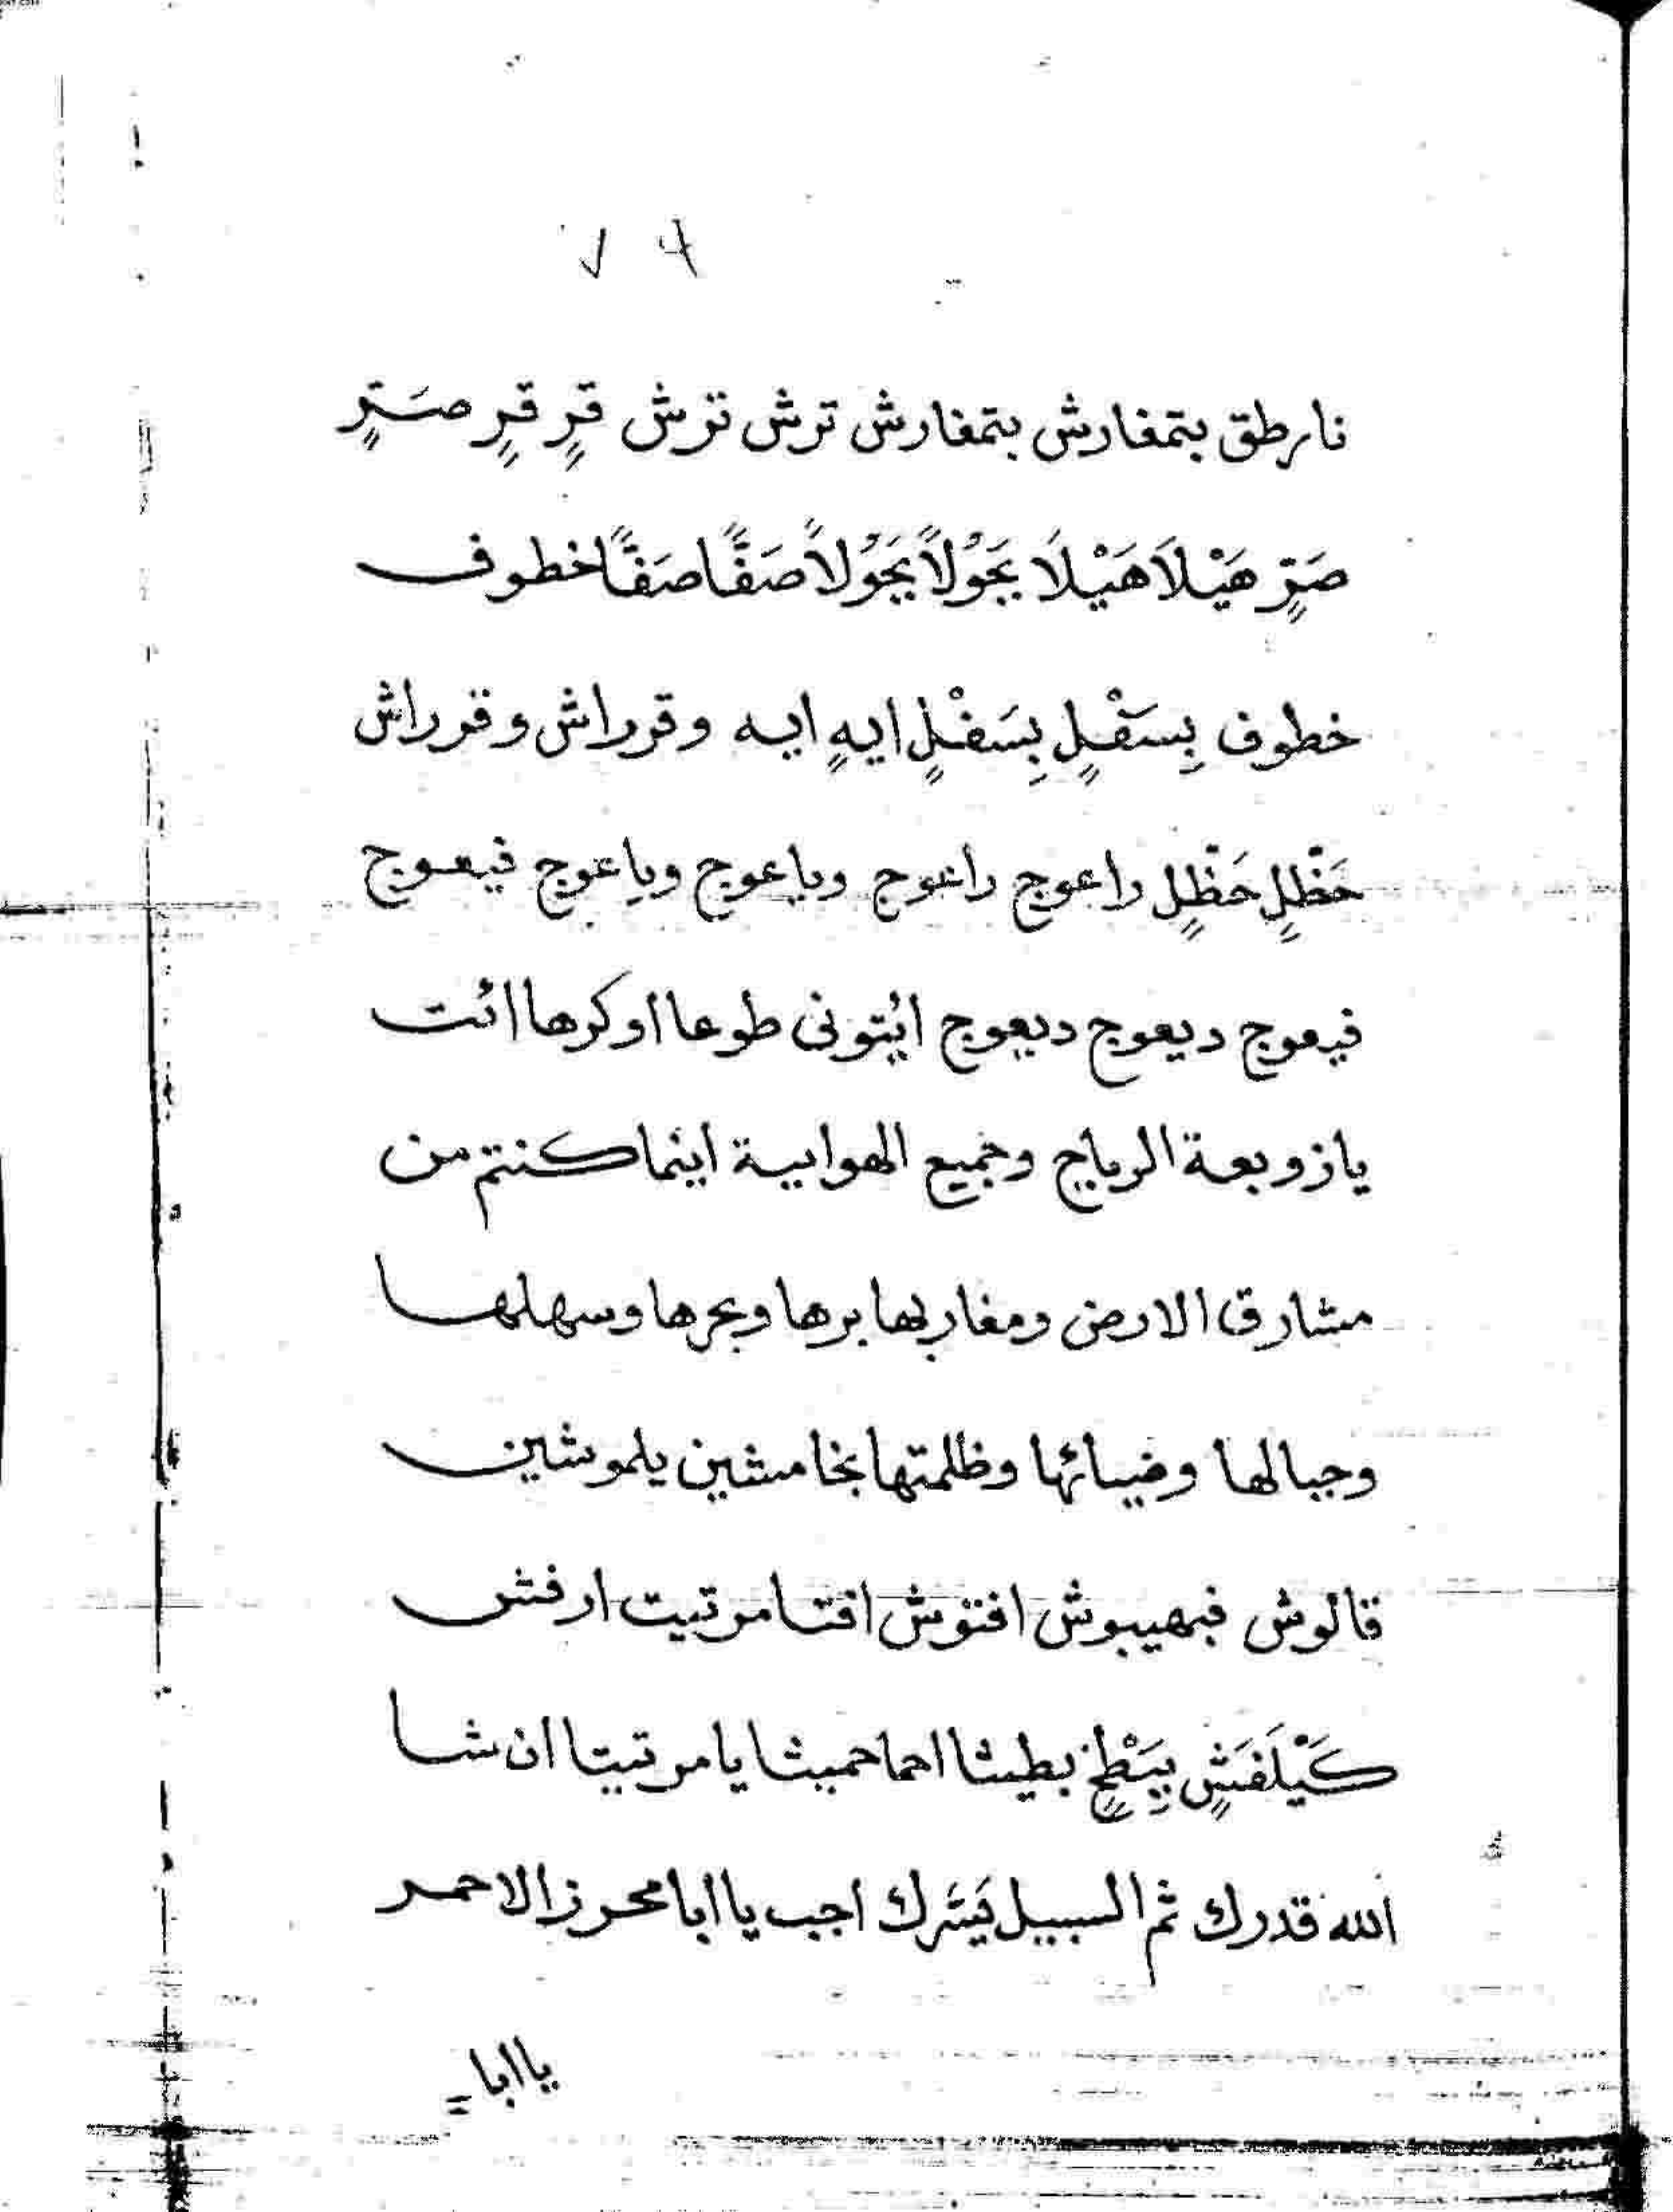 نارطق بتمغارش بتمغارش ترش ترش قرٍ قرٍ صَترٍ
صَترٍ هَيْلاَ هَيْلاَ يَجَوُلاً يَجَوُلاً صَفًّا صَفًّا خطوف
خطوف بِسَفْلٍ بِسَفْلٍ ايهٍ ايه وقرراش وقرراش
حَظْلٍ حَظْلٍ راعوج راعوج وباعوج وباعوج فيعوج
فيعوج ديعوج ديعوج ائيتونى طوعا اوكرها ائت
يا زوبعة الرياح وجميع الهوايية اينما كنتم من
مشارق الارض ومغاربها برها وبحرها وسهلها
وجبالها وضيائها وظلمتها بخامشين يلموشين
قالوش فبهيبوش افتوش افتامرتيت ارفش
كَيْلَفَشٍ بِبَطْخٍ بطيشا احما حميثا يا مرتيتا ان شا
الله قدرك ثم السبيل يَسَّرك اجب يا ابا محرز الاحمر
يا ابا